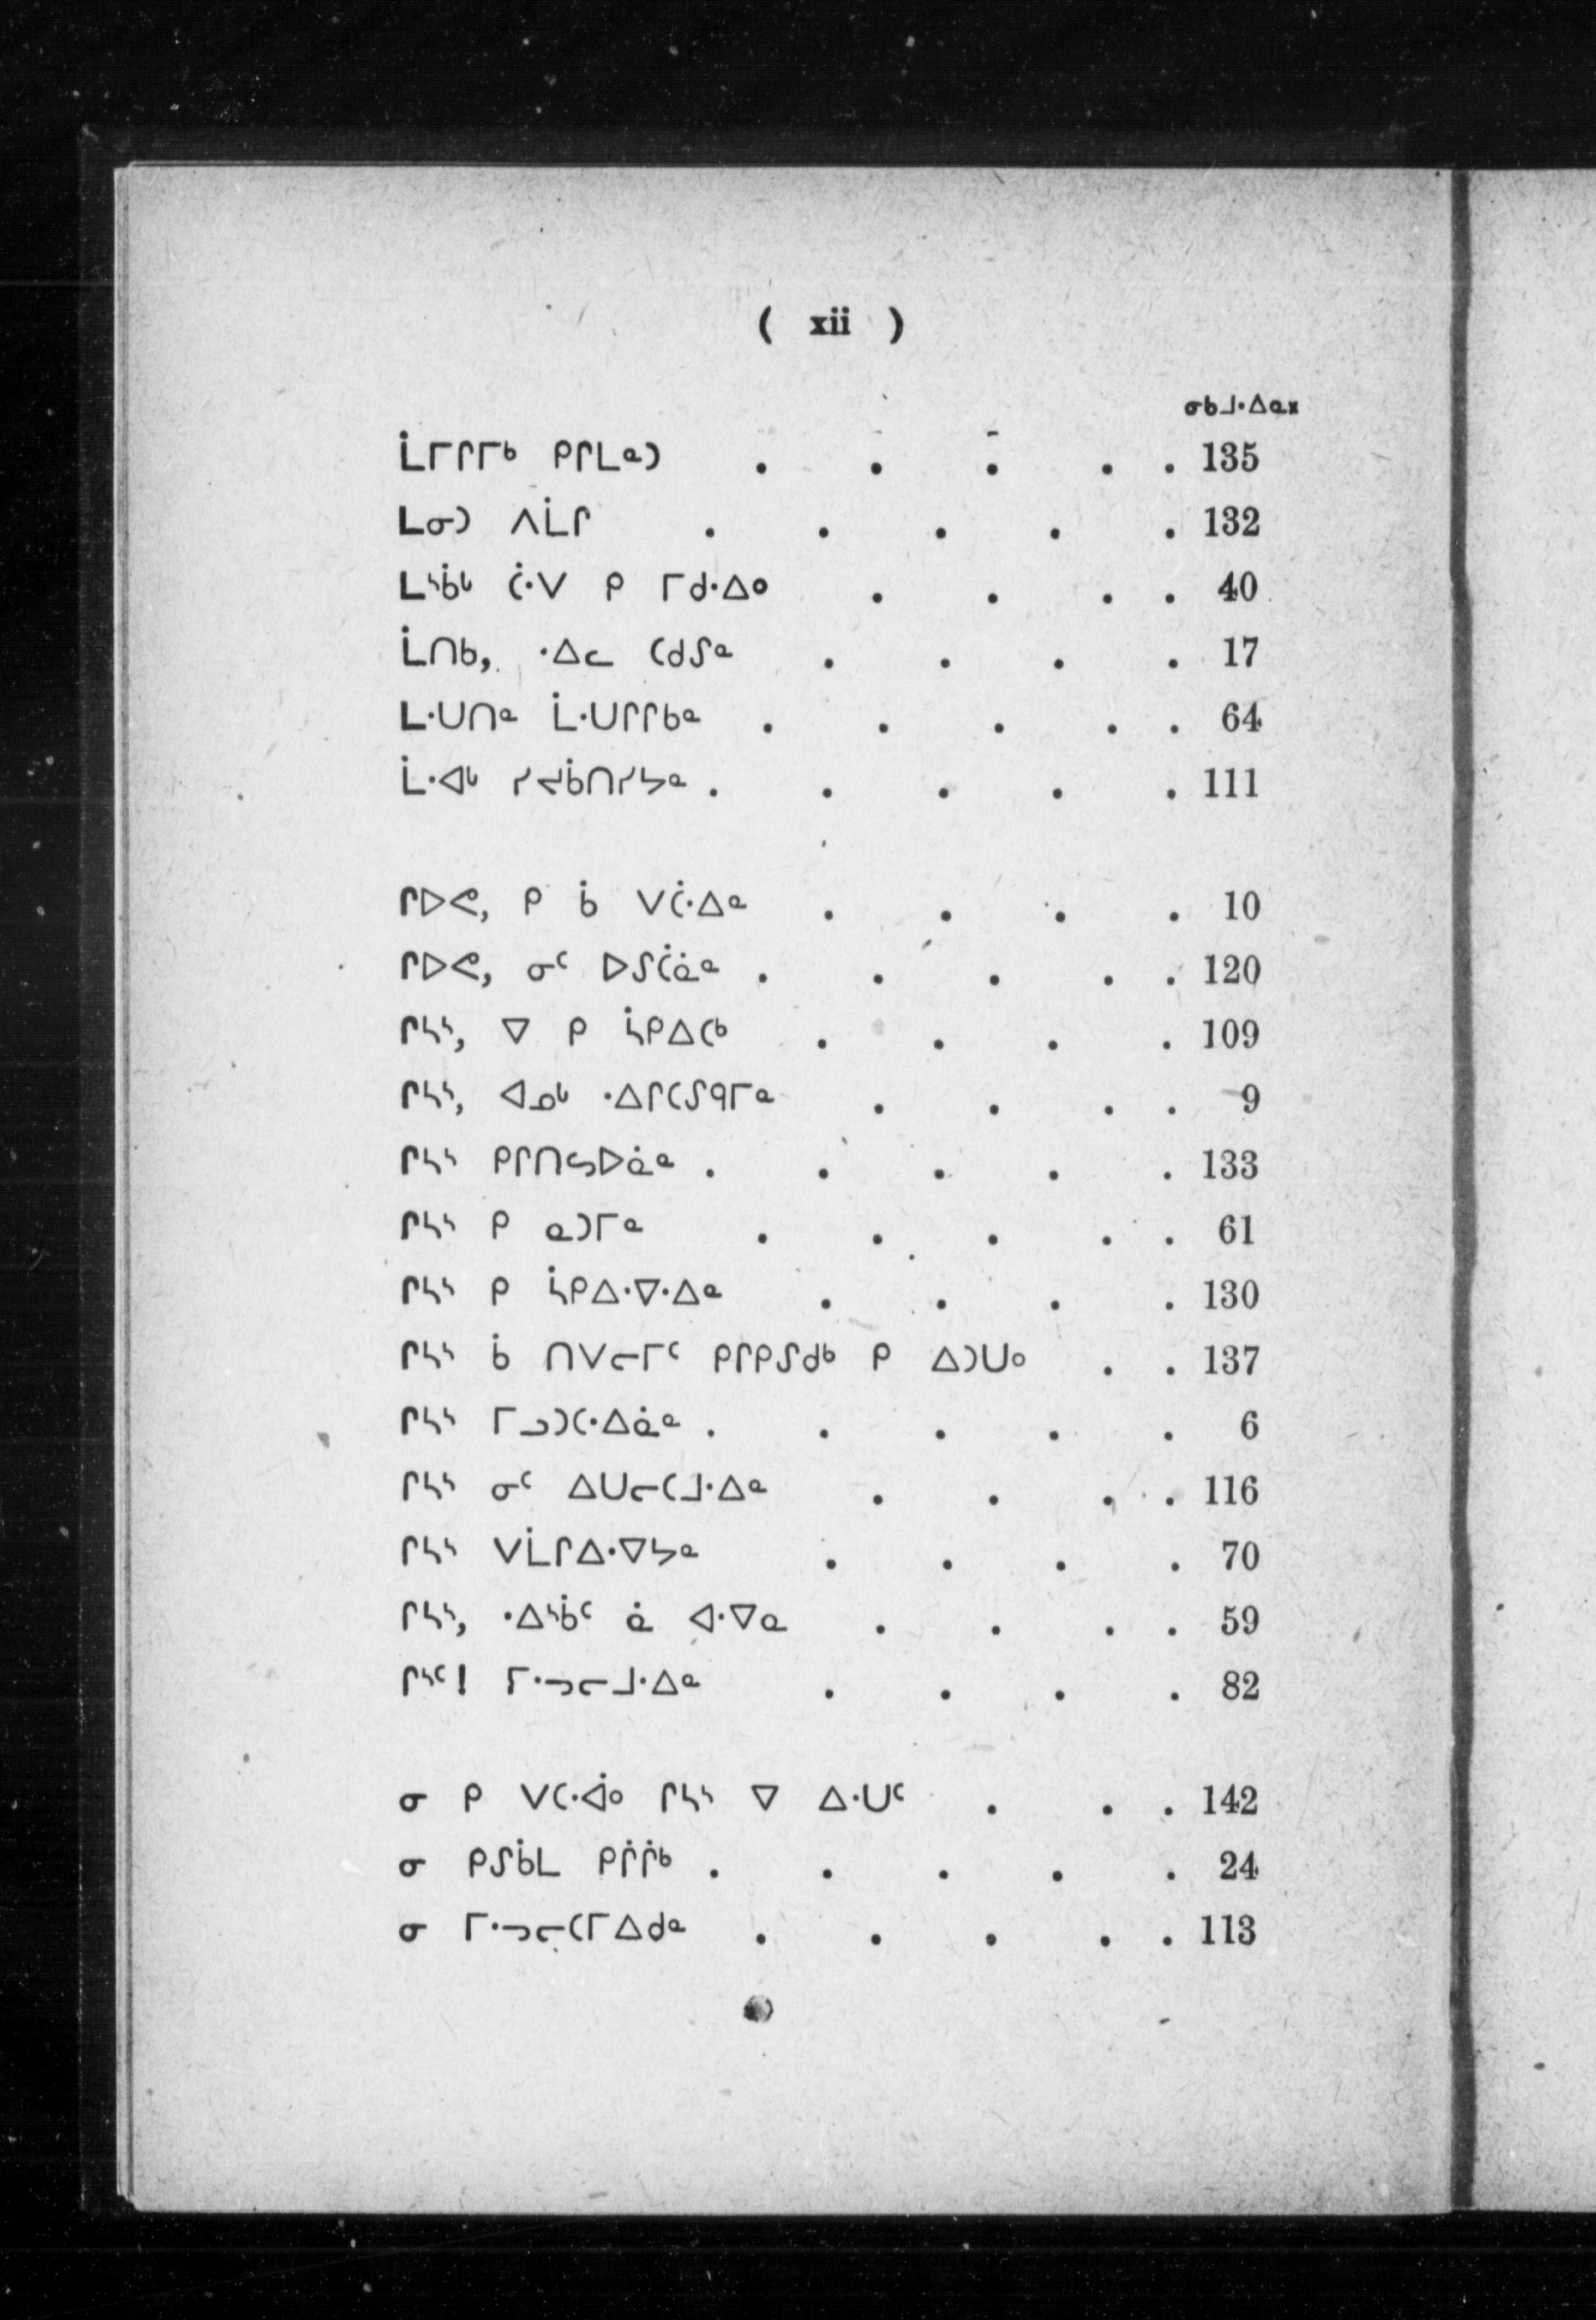 ( xii )
ᓂᑲᒧᐧᐃᓇ᙮
ᒫᒥᒋᒥᒃ ᑭᒋᒪᓐᑐ . . . . . 135
ᒪᓂᑐ ᐱᒫᒋ . . . . . 132
ᒪᔅᑳᒡ ᑖᐧᐯ ᑭ ᒥᑯᐧᐃᐤ . . . . 40
ᒫᑎᑲ, ᐧᐃᓚ ᑕᑯᔑᓐ . . . . 17
ᒪᐧᑌᑎᓐ ᒫᐧᑌᒋᒋᑲᓐ . . . . . 64
ᒫᐧᐊᒡ ᓯᔫᑳᑎᓯᔭᓐ . . . . . 111
ᒋᐅᕙ, ᑭ ᑳ ᐯᑖᐧᐃᓐ . . . . 10
ᒋᐅᕙ, ᓂᑦ ᐅᔑᑖᓈᓐ . . . . . 120
ᒋᓴᔅ, ᐁ ᑭ ᓵᑭᐃᑕᒃ . . . . 109
ᒋᓴᔅ, ᐊᓄᒡ ᐧᐃᒋᑕᔑᑫᒥᓐ . . . . 9
ᒋᓴᔅ ᑭᒋᑎᓭᐅᓈᓐ . . . . . 133
ᒋᓴᔅ ᑭ ᓇᑐᒥᓐ . . . . . 61
ᒋᓴᔅ ᑭ ᓵᑭᐃᐧᐁᐧᐃᓐ . . . . 130
ᒋᓴᔅ ᑳ ᑎᐯᓕᒥᑦ ᑭᒋᑭᔑᑯᒃ ᑭ ᐃᑐᑌᐤ . . 137
ᒋᓴᔅ ᒥᓗᑐᑕᐧᐃᓈᓐ . . . . . 6
ᒋᓴᔅ ᓂᑦ ᐃᑌᓕᑕᒧᐧᐃᓐ . . . . 116
ᒋᓴᔅ ᐯᒫᒋᐃᐧᐁᔭᓐ . . . . 70
ᒋᓴᔅ, ᐧᐃᔅᑳᑦ ᓈ ᐊᐧᐁᓇ . . . . 59
ᒋᓴᑦ! ᒥᐧᓓᓕᒧᐧᐃᓐ . . . . 82
ᓂ ᑭ ᐯᑕᐧᐋᐤ ᒋᓴᔅ ᐁ ᐃᐧᑌᑦ . . . 142
ᓂ ᑭᔑᑳᒪ ᑭᒌᒌᒃ . . . . . 24
ᓂ ᒥᐧᓓᓕᑕᒥᐃᑯᓐ . . . . . 113